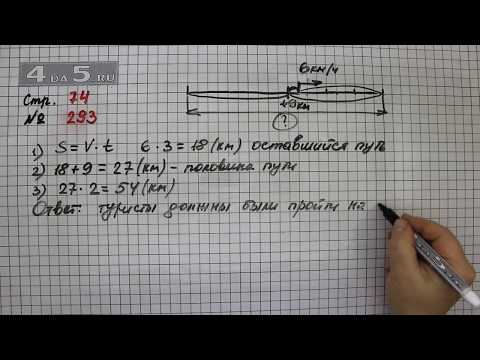 4 DA 5.RU
Стр. 74
№ 293
6 км/ч
+9 км
?
1) S = V · t 6 · 3 = 18 (км) оставшийся путь
2) 18 + 9 = 27 (км) - половина пути
3) 27 · 2 = 54 (км)
Ответ: туристы должны были пройти на